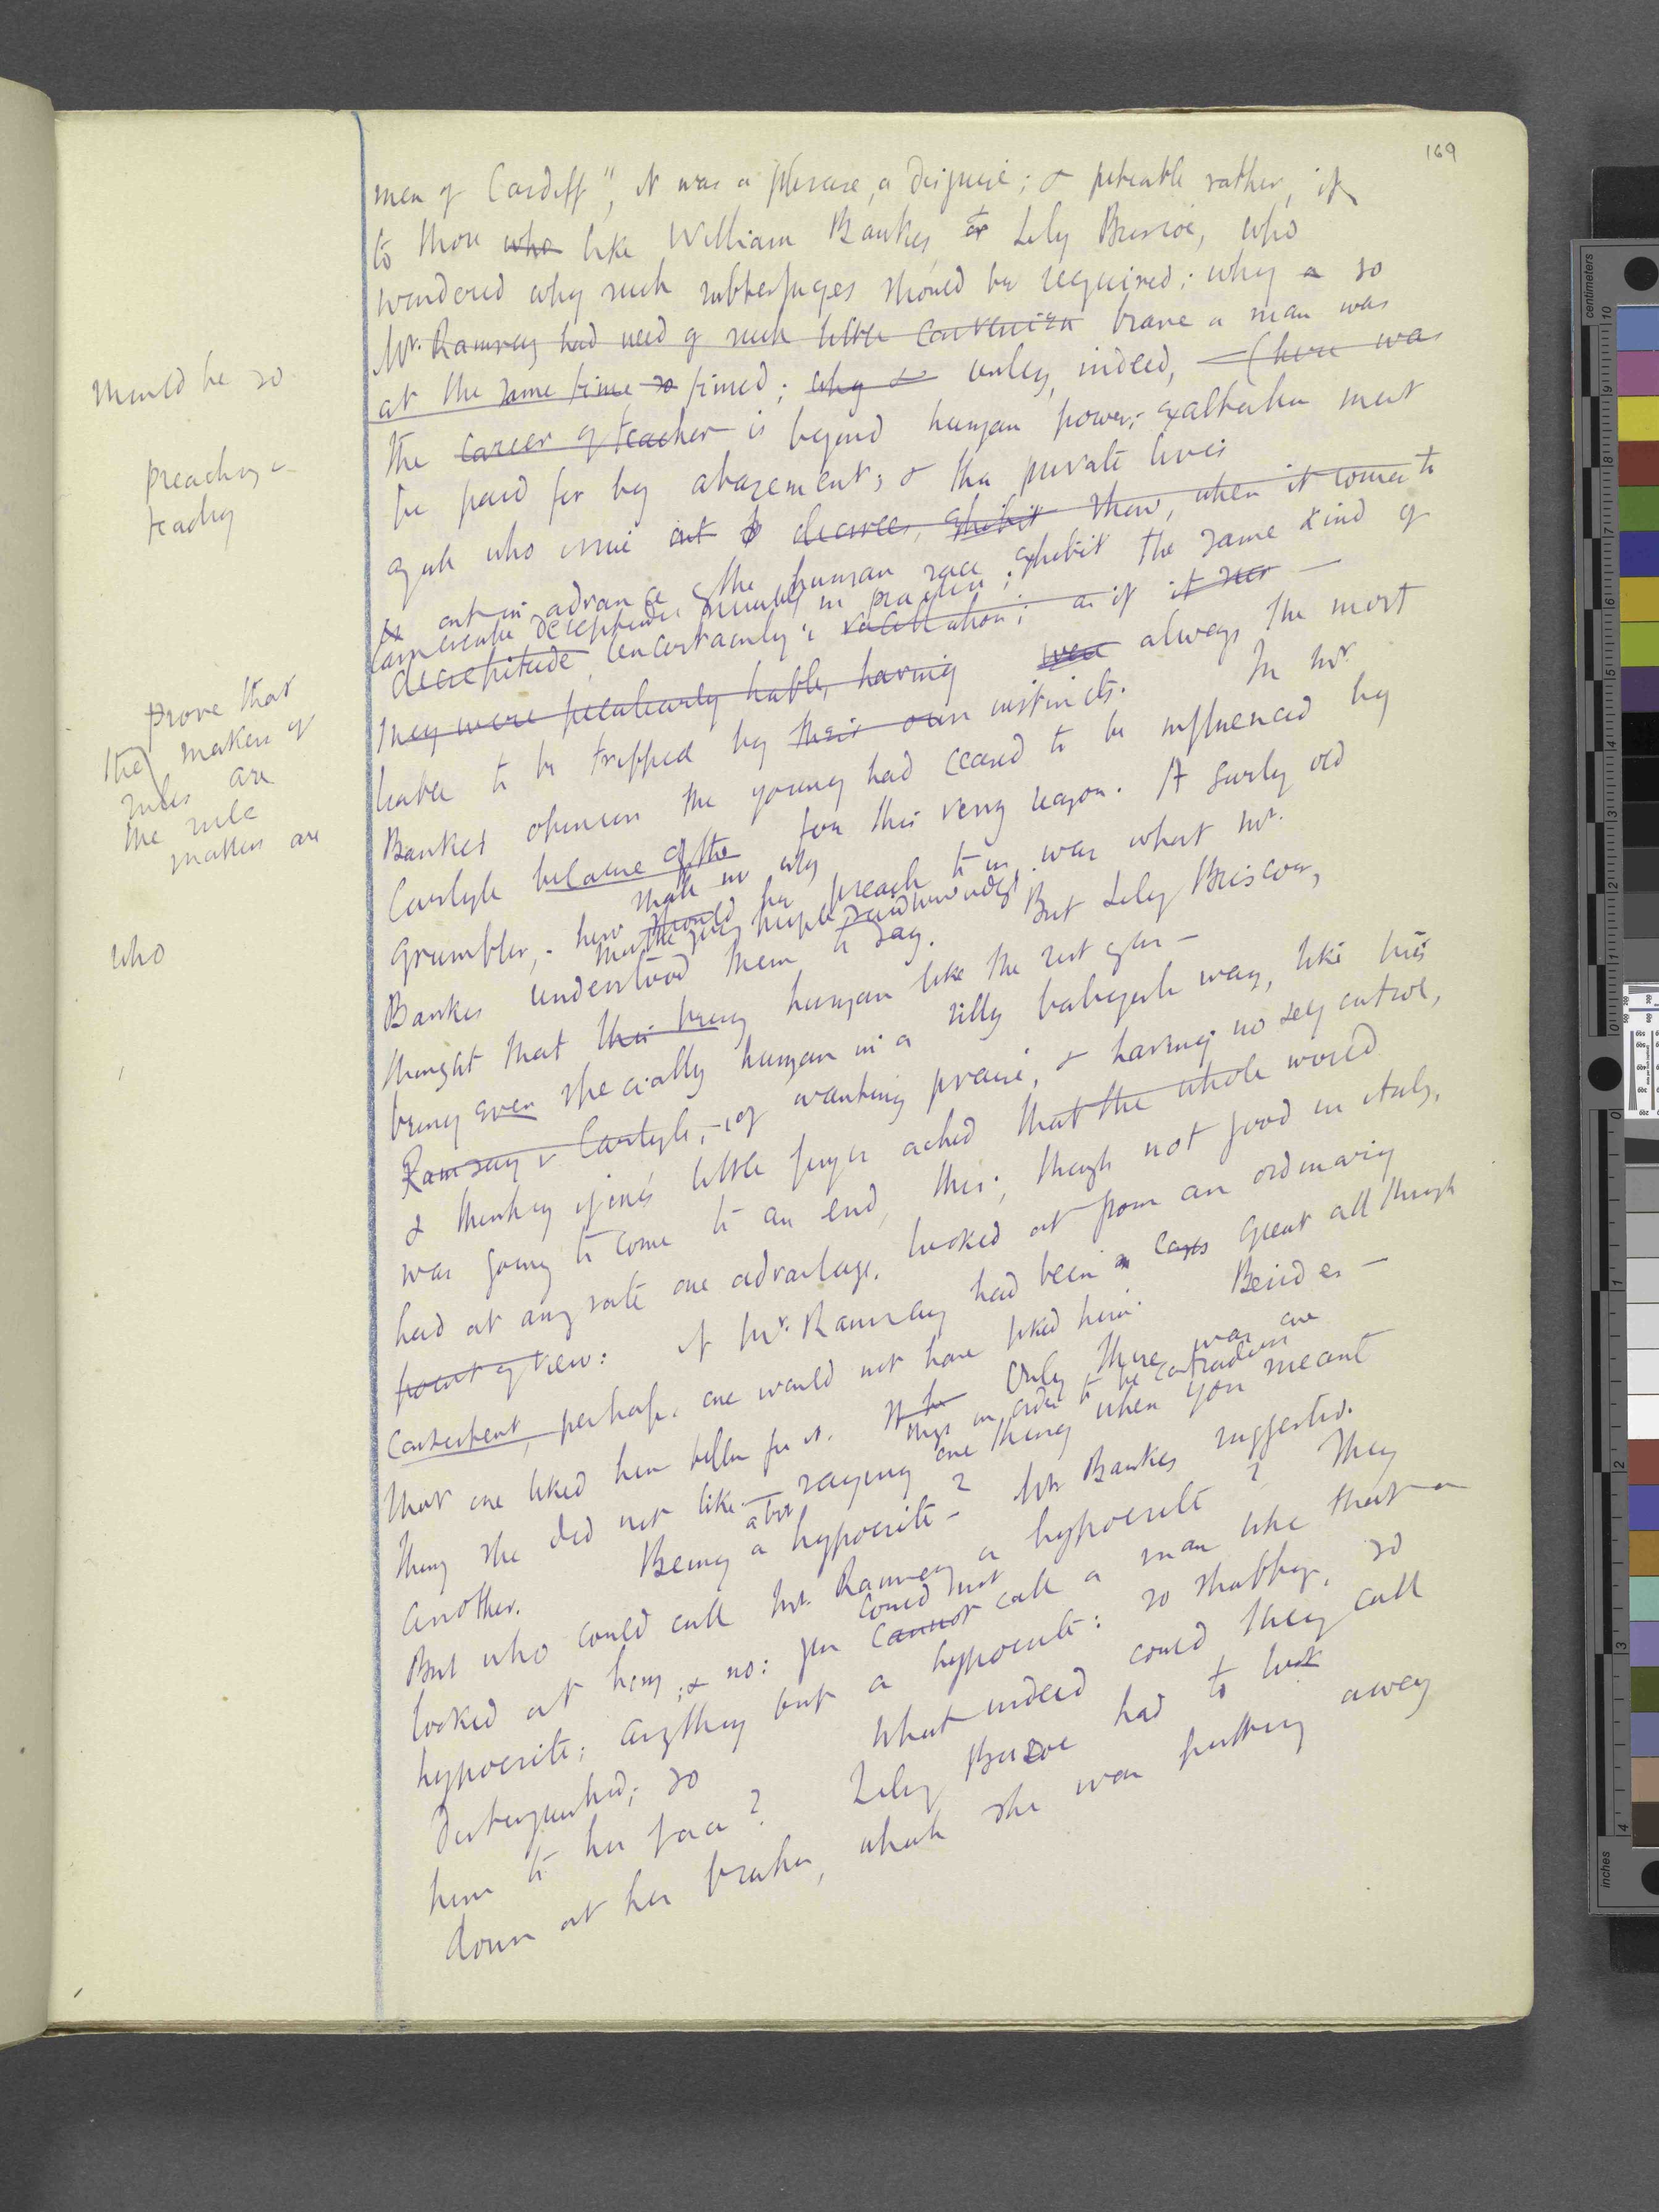 169
men of Cardiff", it was a phrase, a disguise; & pitiable rather, if
to those who like William Bankes, or Lily Briscoe, who
wondered why such subterfuges should be required: why a so
Mr. Ramsay had need of such little brave a man was
should be so
at the same time so timid; why & unless, indeed, — (here was
the career of teacher is beyond human power; exaltation must
preaching &
teaching
be paid for by abasement; & the private lives
of all who issue out decrees, exhibit show, when it comes to
out in advance of the human race, exhibit the same kind of
in practice;
decrepitude uncertainty & vacillation; as if it were —
They were peculiarly liable, having were always the most
prove that
the makers of
rules are
the rule
makers are
liable to be tripped by their own instincts. In Mr
Bankes opinion the young had ceased to be influenced by
Carlyle because of the for this very reason. A surly old
grumbler, - how should he preach to us was what Mr.
Bankes understood them to say. But Lily Briscoe,
who
thought that this being human like the rest of us —
being even specially human in a silly babyish way, like his
Ramsay & Carlyle, - of wanting praise, & having no self control,
& thinking if one's little finger ached that the whole world
was going to come to an end, this; though not good in itself,
had at any rate one advantage, looked at from an ordinary
point of view: if Mr. Ramsay had been great all through
consistent, perhaps one would not have liked him. Besides —
that one liked him better for it. Only there was one
thing she did not like — saying one thing when you meant
another. Being a bit a hypocrite - Mr Bankes suggested.
But who could call Mr. Ramsay a hypocrite? They
looked at him, & no: you cannot could not call a man like that a
hypocrite; anything but a hypocrite: so shabby, so
distinguished; so What indeed could they call
him to his face? Lily Briscoe had to look
down at her brushes, which she was putting away